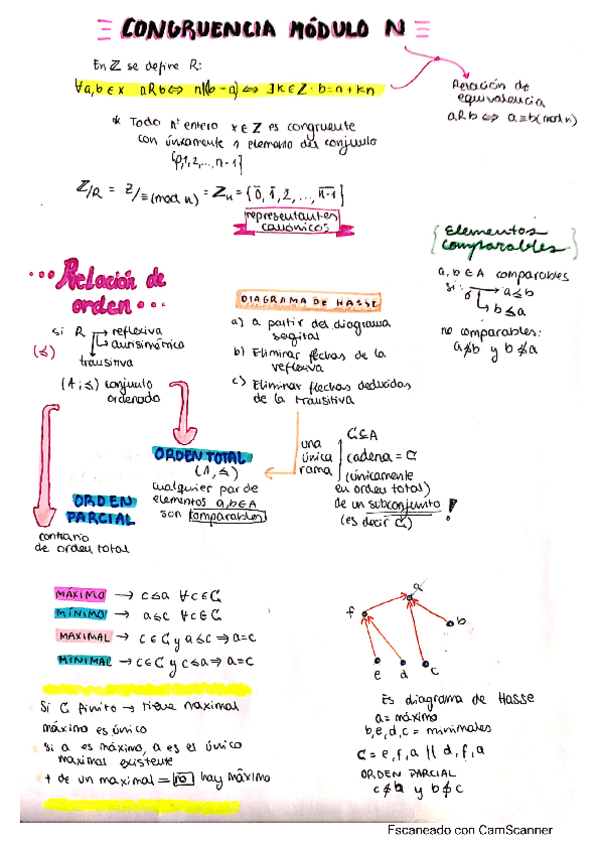 CONGRUENCIA MÓDULO N
En ℤ se define R:
∀a,b∈x aRb⇔ n|(b-a) ⇔ ∃k∈ℤ · b=a+kn
Relación de
equivalencia
aRb ⇔ a≡b(mod n)
* Todo nº entero x∈ℤ es congruente
con únicamente 1 elemento del conjunto
{0,1,2,...,n-1}
ℤ/R = ℤ/≡(mod n) = ℤn = {0̄, 1̄, 2, ..., n-1}
representantes
canónicos
Elementos
comparables
a, b∈A comparables
si: a≼b
o b≼a
no comparables:
a⋠b y b⋠a
Relación de
orden
si R → reflexiva
→ antisimétrica
transitiva
(≼)
(A;≼) conjunto
ordenado
DIAGRAMA DE HASSE
a) a partir del diagrama
sagital
b) Eliminar flechas de la
reflexiva
c) Eliminar flechas deducidas
de la transitiva
ORDEN TOTAL
(A,≼)
cualquier par de
elementos a,b∈A
son comparables
una
única
rama
C⊆A
cadena = C
(únicamente
en orden total)
de un subconjunto!
(es decir C)
ORDEN
PARCIAL
contrario
de orden total
MÁXIMO → c≤a ∀c∈C
MÍNIMO → a≤c ∀c∈C
MAXIMAL → c∈C y a≤c ⇒ a=c
MINIMAL → c∈C y c≤a ⇒ a=c
Si C finito → tiene maximal
máximo es único
Si a es máximo, a es el único
maximal existente
+ de un maximal = no hay máximo
a
f
b
e d c
Es diagrama de Hasse
a = máximo
b,e,d,c = minimales
C = e,f,a || d,f,a
ORDEN PARCIAL
c⋠b y b⋠c
Escaneado con CamScanner